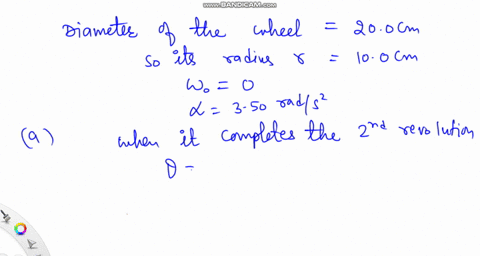 WWW.BANDICAM.COM
Diameter of the wheel = 20.0 cm
so its radius r = 10.0 cm
ω₀ = 0
α = 3.50 rad/s²
(a) when it completes the 2nd revolution
θ =